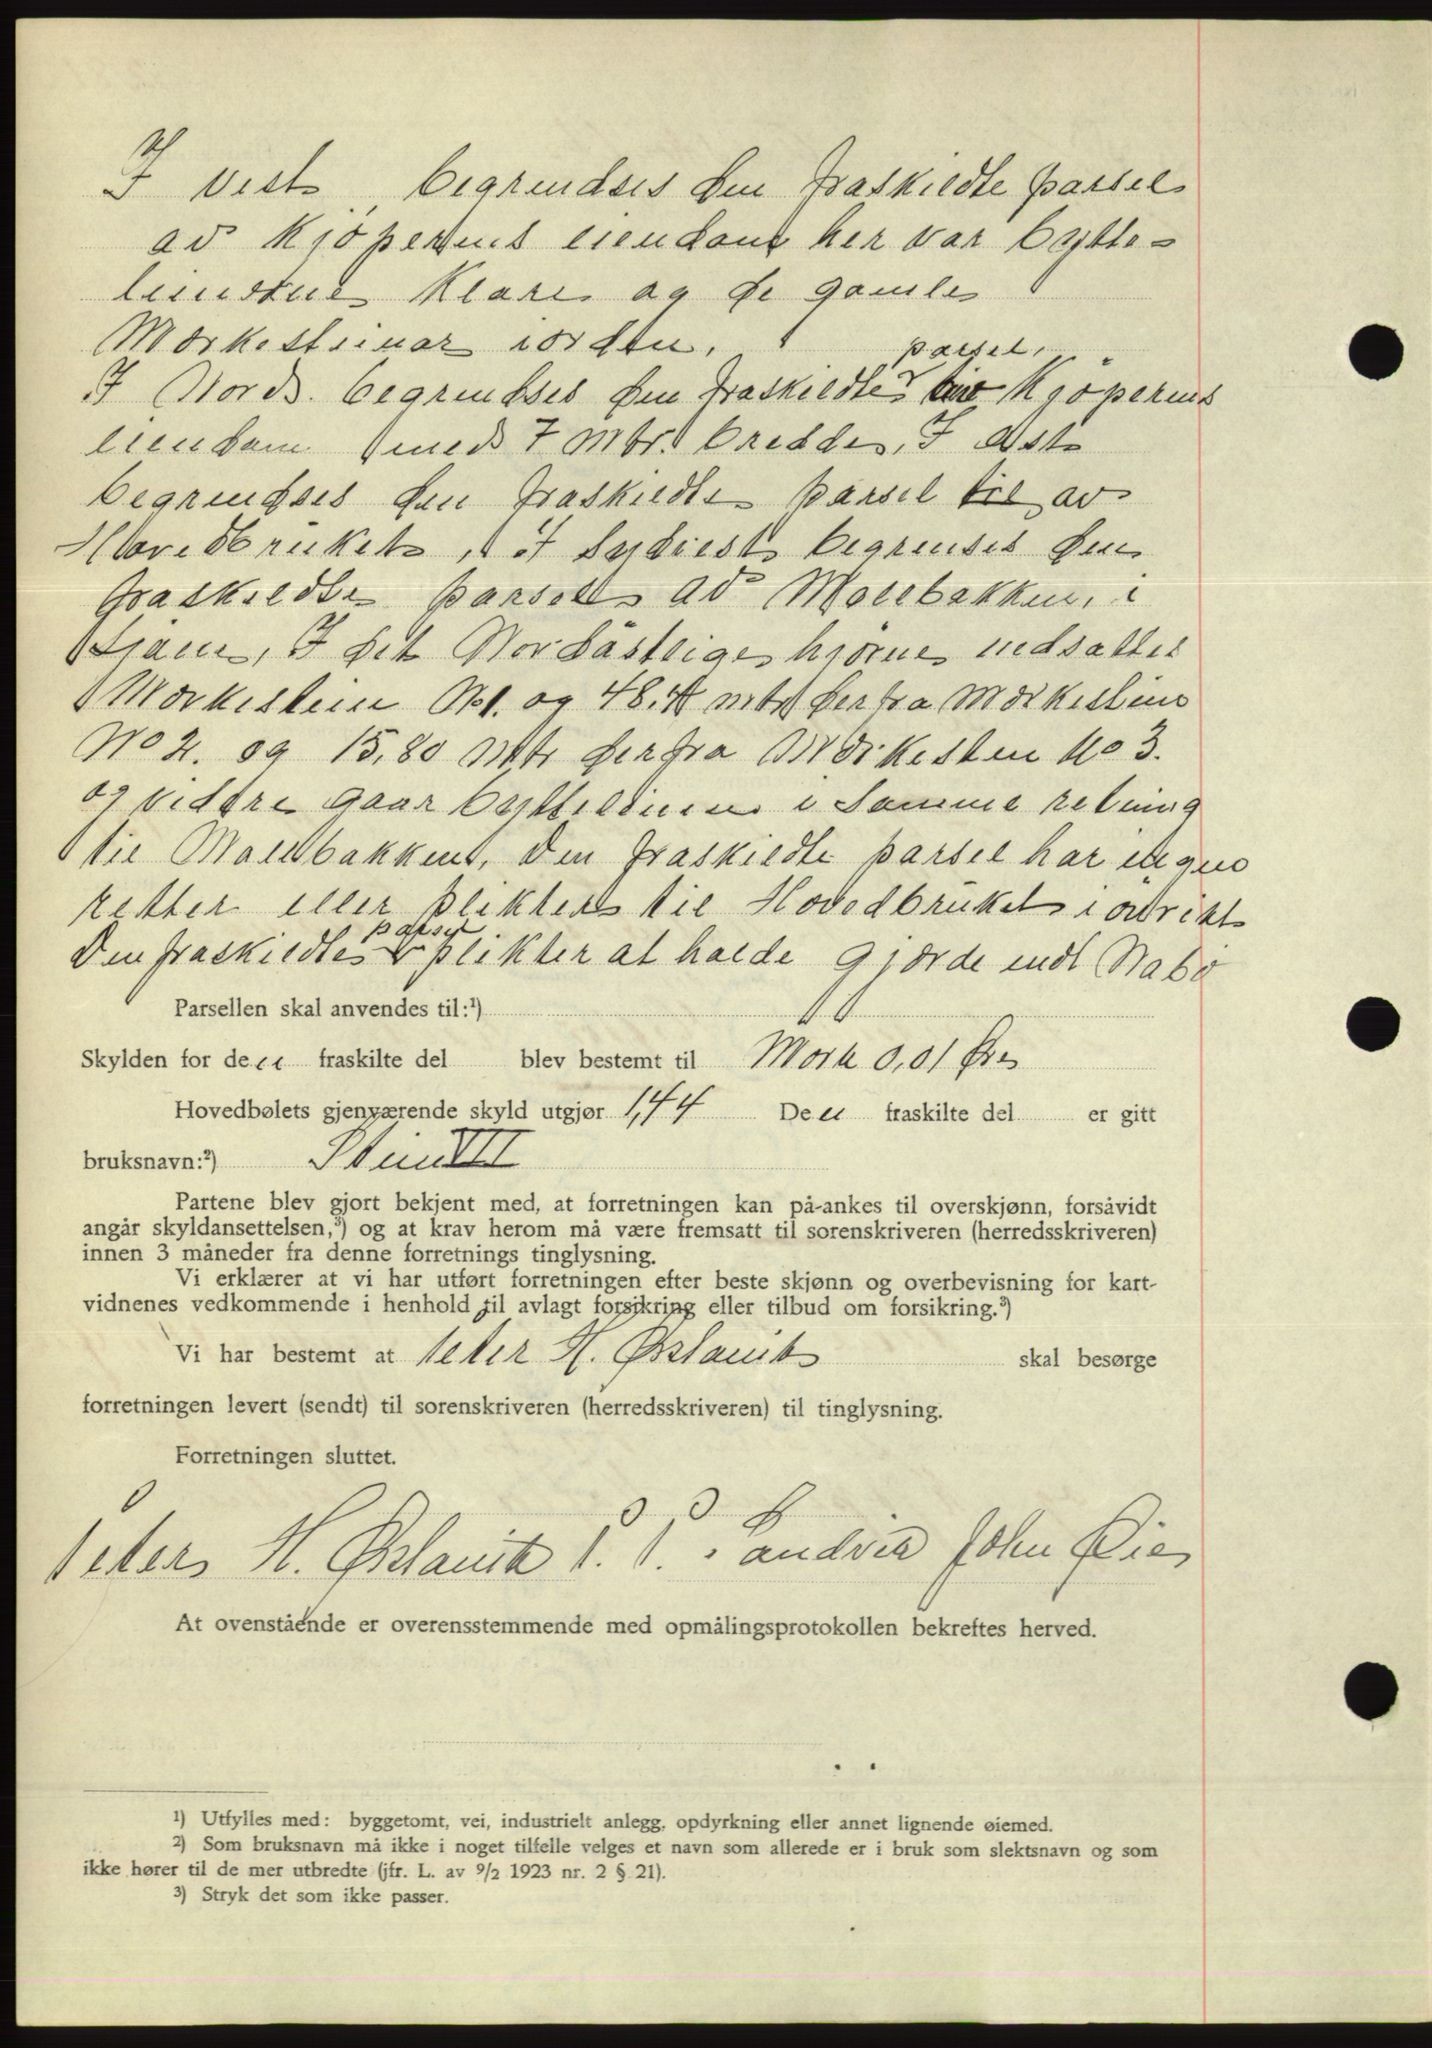 I vest begrendses den fraskildte parsel
av kjöperens eiendom her var bytte-
lienerne klare og de gamle
Merkesteinar iorden.
parsel.
I Nord. begrendses den fraskildte Kjöperens
eiendom med 7 Mtr. bredde, I Øst
begrendses den fraskildte parsel til av
Hovedbruket, I Sydvest begrenses den
fraskildte parsel av Molebakken, i
sjøen, I det Nordöstlige hjörne nedsattes
Merkestein No 1. og 48,4 mtr derfra Merkestein
No 2. og 15,80 Mtr derfra Merkesten No 3.
og videre gaar byttelinien i samme retning
til Molebakken, Den fraskildte parsel har ingen
retter eller plikter til Hovedbruket iövrikt
parsel
Den fraskildte plikter at holde gjærde mot Nabo
Parsellen skal anvendes til:¹)
Skylden for den fraskilte del blev bestemt til Mork 0,01 Øre
Hovedbølets gjenværende skyld utgjør 1,44 Den fraskilte del er gitt
bruksnavn:²) Stein VII
Partene blev gjort bekjent med, at forretningen kan på-ankes til overskjønn, forsåvidt
angår skyldansettelsen,³) og at krav herom må være fremsatt til sorenskriveren (herredsskriveren)
innen 3 måneder fra denne forretnings tinglysning.
Vi erklærer at vi har utført forretningen efter beste skjønn og overbevisning for kart-
vidnenes vedkommende i henhold til avlagt forsikring eller tilbud om forsikring.³)
Vi har bestemt at Peter H. Øslanik skal besørge
forretningen levert (sendt) til sorenskriveren (herredsskriveren) til tinglysning.
Forretningen sluttet.
Peter H. Øslanik P. P. Sandvik John Øie
At ovenstående er overensstemmende med opmålingsprotokollen bekreftes herved.
¹) Utfylles med: byggetomt, vei, industrielt anlegg, opdyrkning eller annet lignende øiemed.
²) Som bruksnavn må ikke i noget tilfelle velges et navn som allerede er i bruk som slektsnavn og som
ikke hører til de mer utbredte (jfr. L. av 9/2 1923 nr. 2 § 21).
³) Stryk det som ikke passer.